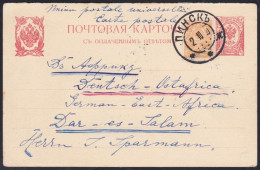 Union postale universelle
Carte postale
ПОЧТОВАЯ КАРТОЧКА
СЪ ОПЛАЧЕННЫМЪ ОТВѢТОМЪ
ПИНСКЪ
Въ Африку
Deutsch-Ostafrica
German-East-Africa
Dar-es-Salam
Herrn T. Sparmann